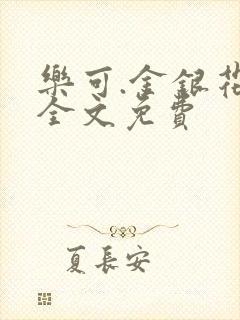 樂可.金銀花
全文免費
夏長安